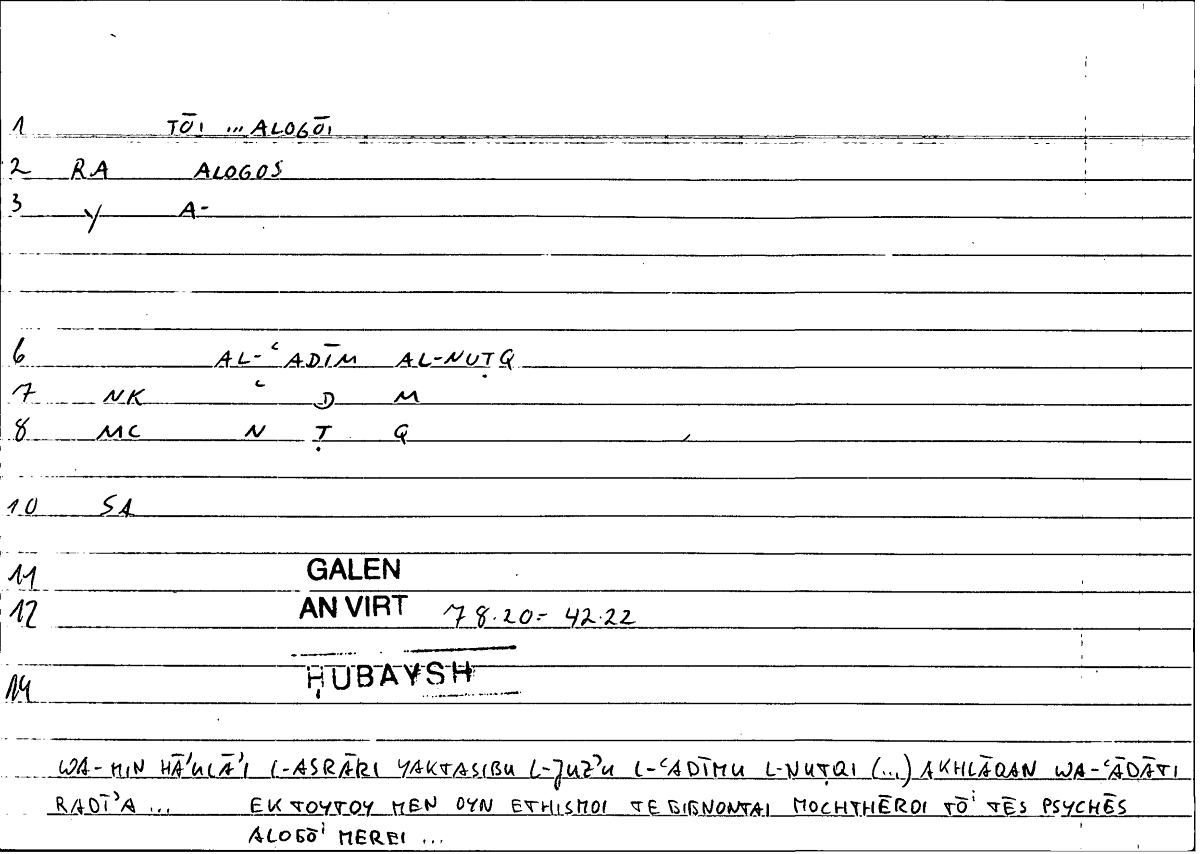 1 TŌI ... ALOGŌI
2 RA ALOGOS
3 Y A-
6 AL-ʿADĪM AL-NUṬQ
7 NK ʿ D M
8 MC N Ṭ Q
10 SA
11 GALEN
12 AN VIRT 78.20 = 42.22
14 ḤUBAYSH
WA-MIN HĀʾULĀʾI L-ASRĀRI YAKTASIBU L-JUZʾU L-ʿADĪMU L-NUṬQI (...) AKHLĀQAN WA-ʿĀDĀTI
RADĪʾA ... EK TOYTOY MEN OYN ETHISMOI TE GIGNONTAI MOCHTHĒROI TŌⁱ TĒS PSYCHĒS
ALOGŌⁱ MEREI ...